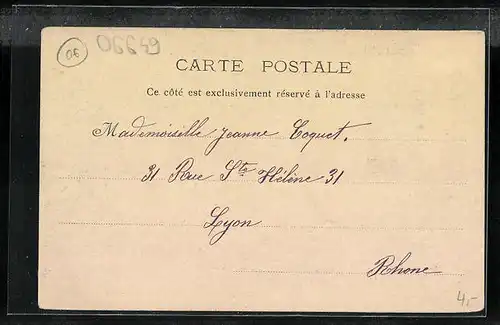 06649
06
CARTE POSTALE
Ce côté est exclusivement réservé à l'adresse
Mademoiselle Jeanne Coquet.
31 Rue Ste Hélène 31
Lyon
Rhone
4,-